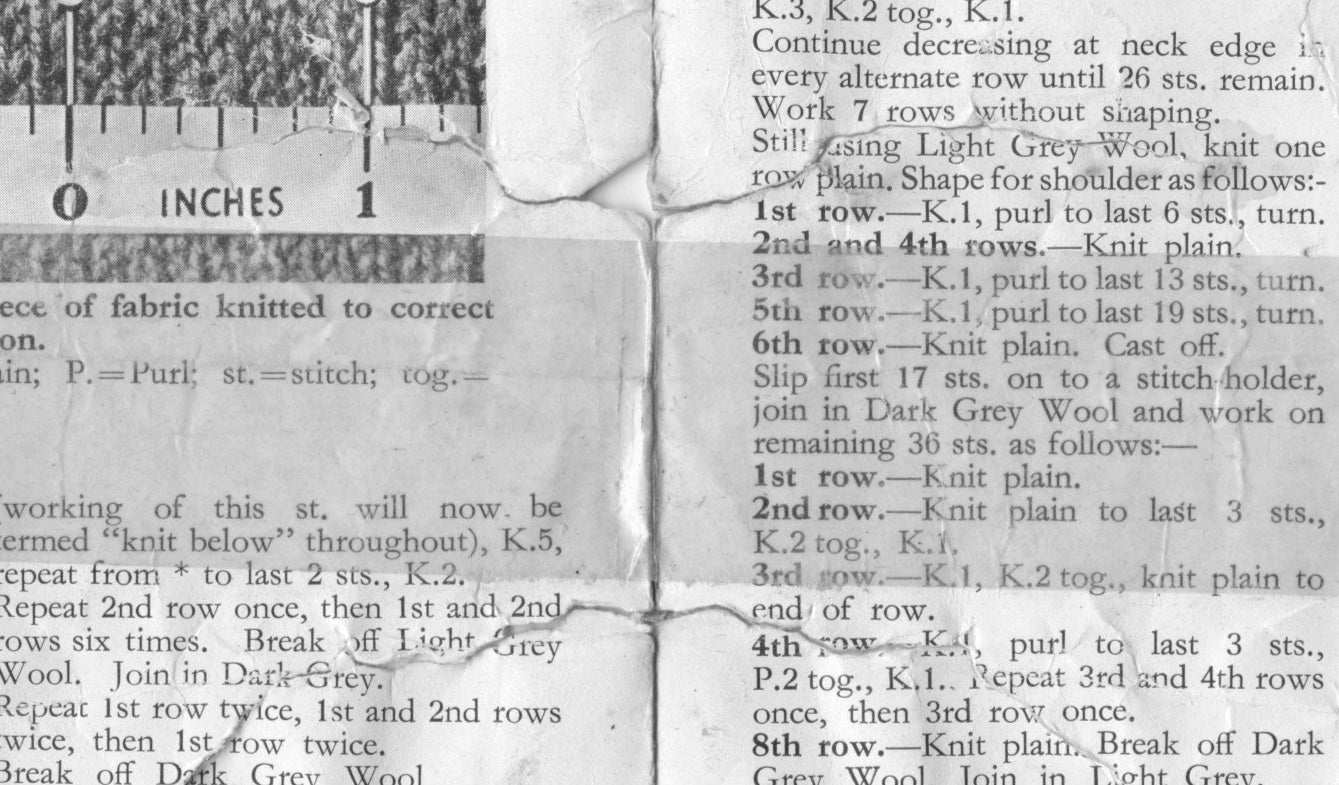 0 INCHES 1
ece of fabric knitted to correct
on.
in; P.=Purl; st.=stitch; tog.=
(working of this st. will now be
termed “knit below” throughout), K.5,
repeat from * to last 2 sts., K.2.
Repeat 2nd row once, then 1st and 2nd
rows six times. Break off Light Grey
Wool. Join in Dark Grey.
Repeat 1st row twice, 1st and 2nd rows
twice, then 1st row twice.
Break off Dark Grey Wool
K.3, K.2 tog., K.1.
Continue decreasing at neck edge in
every alternate row until 26 sts. remain.
Work 7 rows without shaping.
Still using Light Grey Wool, knit one
row plain. Shape for shoulder as follows:-
1st row.—K.1, purl to last 6 sts., turn.
2nd and 4th rows.—Knit plain.
3rd row.—K.1, purl to last 13 sts., turn.
5th row.—K.1, purl to last 19 sts., turn.
6th row.—Knit plain. Cast off.
Slip first 17 sts. on to a stitch-holder,
join in Dark Grey Wool and work on
remaining 36 sts. as follows:—
1st row.—Knit plain.
2nd row.—Knit plain to last 3 sts.,
K.2 tog., K.1.
3rd row.—K.1, K.2 tog., knit plain to
end of row.
4th row.—K.1, purl to last 3 sts.,
P.2 tog., K.1. Repeat 3rd and 4th rows
once, then 3rd row once.
8th row.—Knit plain. Break off Dark
Grey Wool. Join in Light Grey.